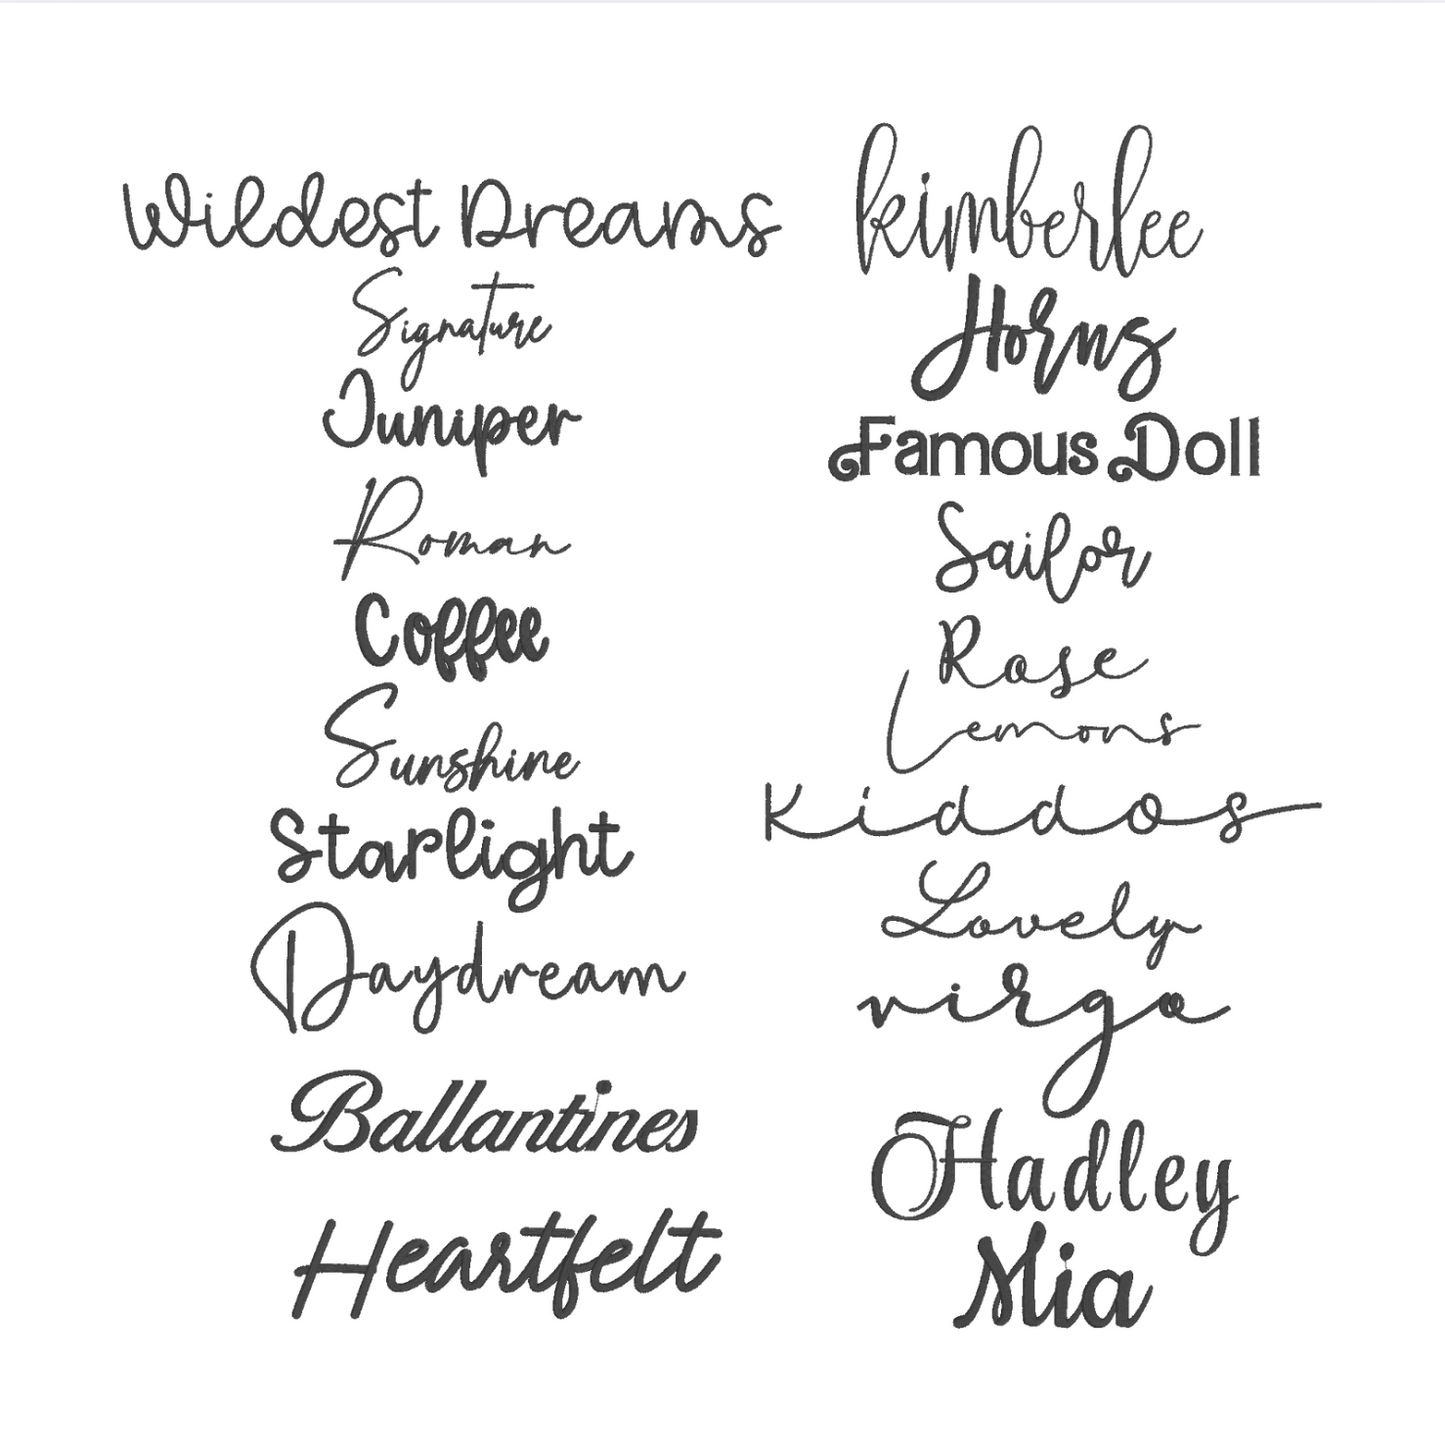 Wildest Dreams
Signature
Juniper
Roman
Coffee
Sunshine
Starlight
Daydream
Ballantines
Heartfelt
kimberlee
Horns
Famous Doll
Sailor
Rose
Lemons
Kiddos
Lovely
virgo
Hadley
Mia